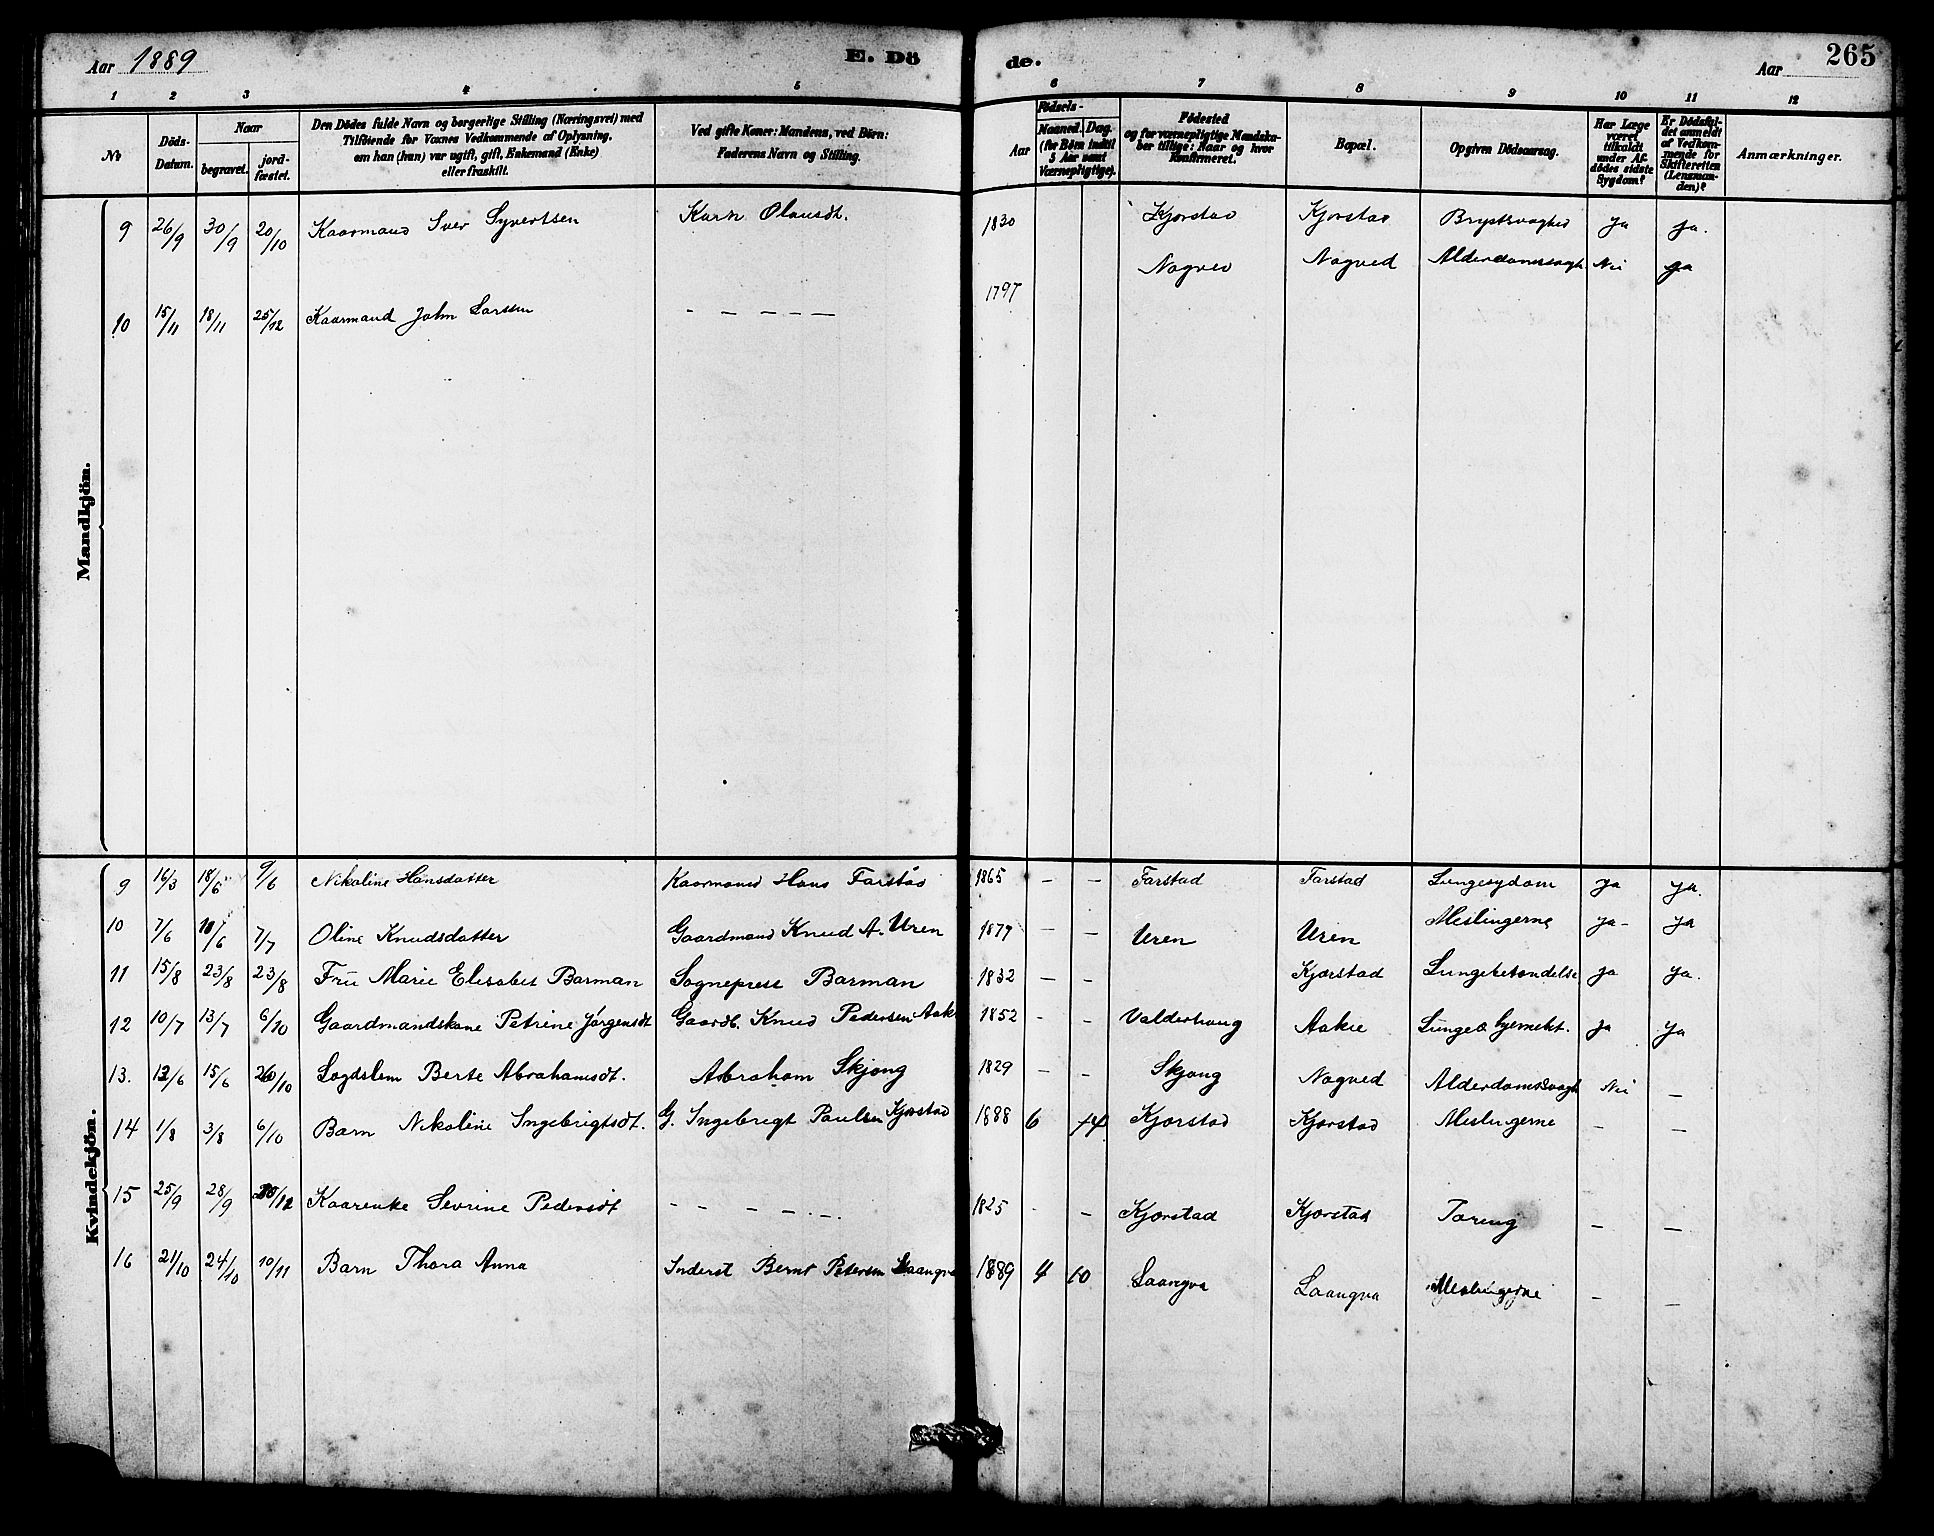 Aar 1889 E. Dö de. Aar 265
1 2 3 4 5 6 7 8 9 10 11 12
No
Döds-Datum.
Naar
begravet.
jord-fæstet.
Den Dödes fulde Navn og borgerlige Stilling (Næringsvei) med
Tilföiende for Voxnes Vedkommende af Oplysning,
om han (hun) var ugift, gift, Enkemand (Enke)
eller fraskilt.
Ved gifte Koner: Mandens, ved Börn:
Faderens Navn og Stilling.
Aar
Födsels-
Maaned. Dag.
(for Börn indtil
5 Aar samt
Værnepligtige).
Födested
og for værnepligtige Mandska-
ber tillige: Naar og hvor
Konfirmeret.
Bopæl.
Opgiven Dödsaarsag.
Har Læge
været
tilkaldt
under Af-
dödes sidste
Sygdom?
Er Dödsfal-
det anmeldt
af Vedkom-
mende for
Skifteretten
(Lensman-
den)?
Anmærkninger.
Mandkjön.
9 26/9 30/9 20/10 Kaarmand Iver Syvertsen Karn Olausdt. 1830 Kjorstad Kjorstad Brystsvaghed Ja Ja.
10 15/11 18/11 25/12 Kaarmand John Larssen - - - - - 1797 Nogved Nogved Alderdomssvagh. Nei Ja
Kvindekjön.
9 16/3 18/6 9/6 Nikoline Hansdatter Kaarmand Hans Farstad 1865 - - Farstad Farstad Lungesygdom Ja Ja.
10 7/6 10/6 7/7 Oline Knudsdatter Gaardmand Knud A. Uren 1879 - - Uren Uren Meslingerne Ja - Ja
11 15/8 23/8 23/8 Fru Marie Elisabet Barman Sogneprest Barman 1832 - - Kjorstad Lungebetændelse Ja Ja.
12 10/7 13/7 6/10 Gaardmandskone Petrine Jörgensdt Gaardb. Knud Pedersen Aak 1852 - - Valderhaug Aakre Ja Ja
13. 12/6 15/6 20/10 Logdslem Berte Abrahamsdt. Abraham Skjong 1829 - - Skjong Nogved Alderdomssvagh Nei -
14 1/8 3/8 6/10 Barn Nikoline Ingebrigtsdt. G. Ingebrigt Paulsen Kjorstad 1888 6 14 Kjorstad Kjorstad Meslingerne - -
15 25/9 28/9 Kaarenke Sevrine Pedersdt - - - - - 1825 - - Kjorstad Kjorstad Tæring - -
16 21/10 24/10 10/11 Barn Thora Anna Inderst Bernt Petersen Laangva 1889 4 10 Laangva Laangva Meslingerne - -